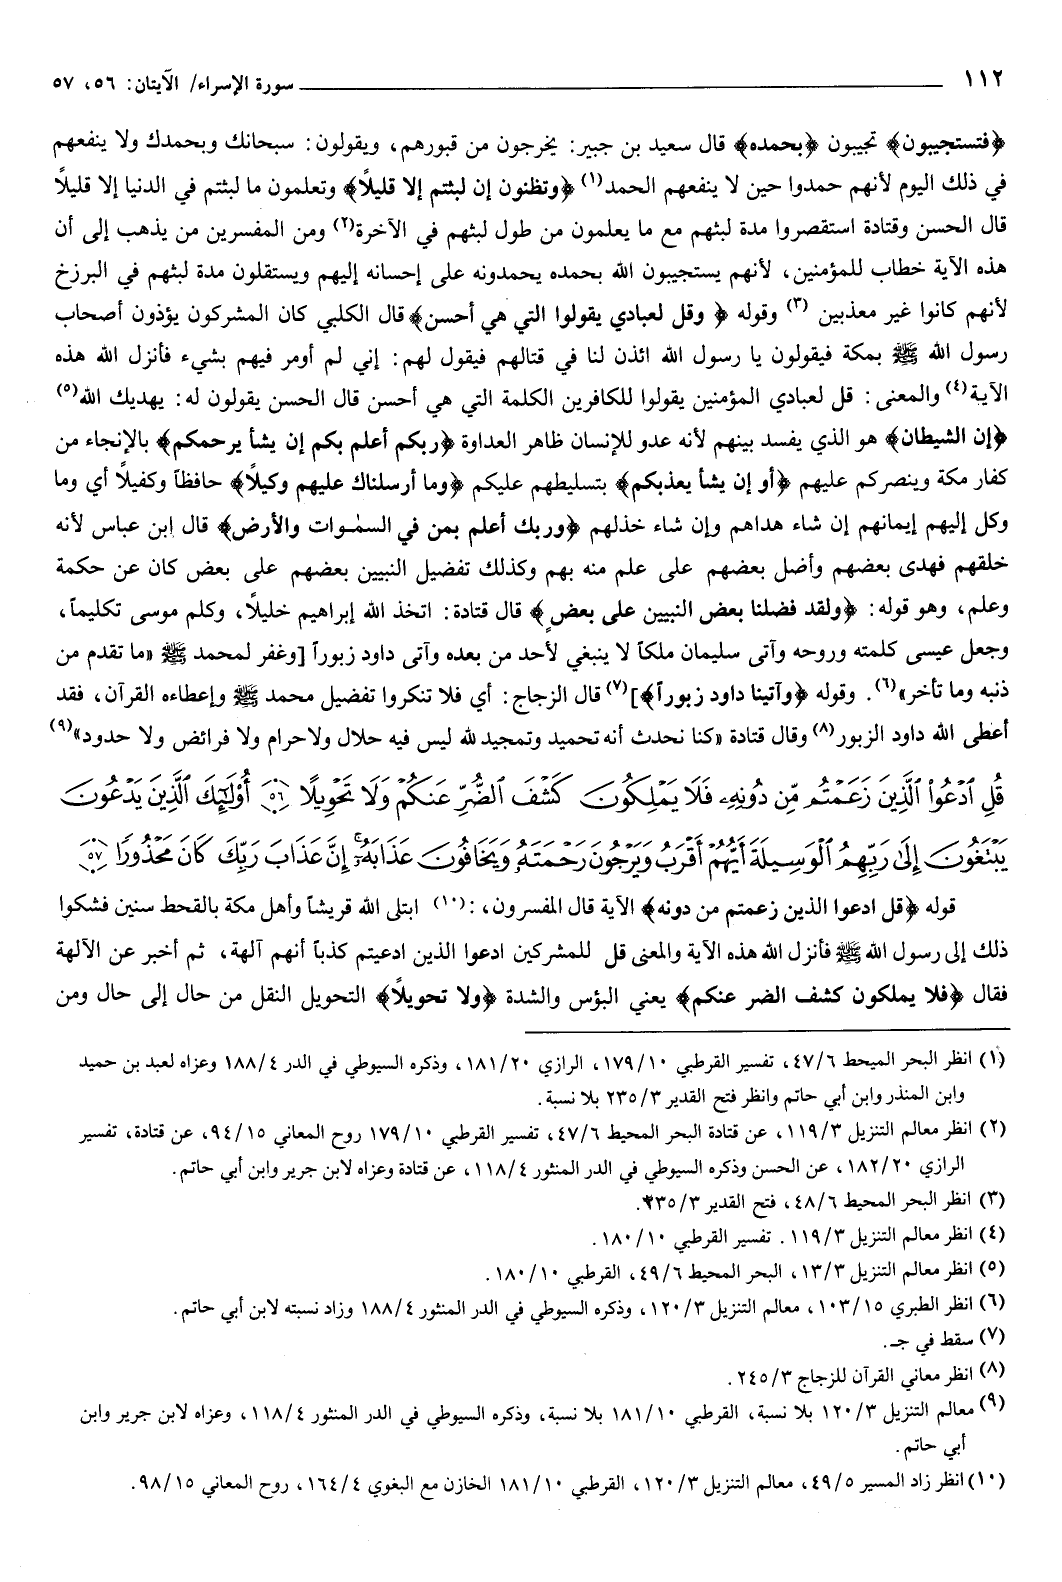 ١١٢ سورة الإسراء/ الآيتان: ٥٦، ٥٧
﴿فتستجيبون﴾ تجيبون ﴿بحمده﴾ قال سعيد بن جبير: يخرجون من قبورهم، ويقولون: سبحانك وبحمدك ولا ينفعهم
في ذلك اليوم لأنهم حمدوا حين لا ينفعهم الحمد(١) ﴿وتظنون إن لبثتم إلا قليلاً﴾ وتعلمون ما لبثتم في الدنيا إلا قليلاً
قال الحسن وقتادة استقصروا مدة لبثهم مع ما يعلمون من طول لبثهم في الآخرة(٢) ومن المفسرين من يذهب إلى أن
هذه الآية خطاب للمؤمنين، لأنهم يستجيبون الله بحمده يحمدونه على إحسانه إليهم ويستقلون مدة لبثهم في البرزخ
لأنهم كانوا غير معذبين (٣) وقوله ﴿ وقل لعبادي يقولوا التي هي أحسن﴾ قال الكلبي كان المشركون يؤذون أصحاب
رسول الله ﷺ بمكة فيقولون يا رسول الله ائذن لنا في قتالهم فيقول لهم: إني لم أومر فيهم بشيء فأنزل الله هذه
الآية(٤) والمعنى: قل لعبادي المؤمنين يقولوا للكافرين الكلمة التي هي أحسن قال الحسن يقولون له: يهديك الله(٥)
﴿إن الشيطان﴾ هو الذي يفسد بينهم لأنه عدو للإنسان ظاهر العداوة ﴿ربكم أعلم بكم إن يشأ يرحمكم﴾ بالإنجاء من
كفار مكة وينصركم عليهم ﴿أو إن يشأ يعذبكم﴾ بتسليطهم عليكم ﴿وما أرسلناك عليهم وكيلاً﴾ حافظاً وكفيلاً أي وما
وكل إليهم إيمانهم إن شاء هداهم وإن شاء خذلهم ﴿وربك أعلم بمن في السمٰوات والأرض﴾ قال ابن عباس لأنه
خلقهم فهدى بعضهم وأضل بعضهم على علم منه بهم وكذلك تفضيل النبيين بعضهم على بعض كان عن حكمة
وعلم، وهو قوله: ﴿ولقد فضلنا بعض النبيين على بعضٍ﴾ قال قتادة: اتخذ الله إبراهيم خليلاً، وكلم موسى تكليماً،
وجعل عيسى كلمته وروحه وآتى سليمان ملكاً لا ينبغي لأحد من بعده وآتى داود زبوراً [وغفر لمحمد ﷺ «ما تقدم من
ذنبه وما تأخر»(٦). وقوله ﴿وآتينا داود زبوراً﴾](٧) قال الزجاج: أي فلا تنكروا تفضيل محمد ﷺ وإعطاءه القرآن، فقد
أعطى الله داود الزبور(٨) وقال قتادة «كنا نحدث أنه تحميد وتمجيد لله ليس فيه حلال ولا حرام ولا فرائض ولا حدود»(٩)
قُلِ ٱدْعُوا۟ ٱلَّذِينَ زَعَمْتُم مِّن دُونِهِۦ فَلَا يَمْلِكُونَ كَشْفَ ٱلضُّرِّ عَنكُمْ وَلَا تَحْوِيلًا ٥٦ أُو۟لَٰٓئِكَ ٱلَّذِينَ يَدْعُونَ
يَبْتَغُونَ إِلَىٰ رَبِّهِمُ ٱلْوَسِيلَةَ أَيُّهُمْ أَقْرَبُ وَيَرْجُونَ رَحْمَتَهُۥ وَيَخَافُونَ عَذَابَهُۥٓ ۚ إِنَّ عَذَابَ رَبِّكَ كَانَ مَحْذُورًا ٥٧
قوله ﴿قل ادعوا الذين زعمتم من دونه﴾ الآية قال المفسرون،:(١٠) ابتلى الله قريشاً وأهل مكة بالقحط سنين فشكوا
ذلك إلى رسول الله ﷺ فأنزل الله هذه الآية والمعنى قل للمشركين ادعوا الذين ادعيتم كذباً أنهم آلهة، ثم أخبر عن الآلهة
فقال ﴿فلا يملكون كشف الضر عنكم﴾ يعني البؤس والشدة ﴿ولا تحويلاً﴾ التحويل النقل من حال إلى حال ومن
(١) انظر البحر الميحط ٤٧/٦، تفسير القرطبي ١٧٩/١٠، الرازي ١٨١/٢٠، وذكره السيوطي في الدر ١٨٨/٤ وعزاه لعبد بن حميد
وابن المنذر وابن أبي حاتم وانظر فتح القدير ٢٣٥/٣ بلا نسبة.
(٢) انظر معالم التنزيل ١١٩/٣، عن قتادة البحر المحيط ٤٧/٦، تفسير القرطبي ١٧٩/١٠ روح المعاني ٩٤/١٥، عن قتادة، تفسير
الرازي ١٨٢/٢٠، عن الحسن وذكره السيوطي في الدر المنثور ١١٨/٤، عن قتادة وعزاه لابن جرير وابن أبي حاتم.
(٣) انظر البحر المحيط ٤٨/٦، فتح القدير ٢٣٥/٣.
(٤) انظر معالم التنزيل ١١٩/٣. تفسير القرطبي ١٨٠/١٠.
(٥) انظر معالم التنزيل ١٣/٣، البحر المحيط ٤٩/٦، القرطبي ١٨٠/١٠.
(٦) انظر الطبري ١٠٣/١٥، معالم التنزيل ١٢٠/٣، وذكره السيوطي في الدر المنثور ١٨٨/٤ وزاد نسبته لابن أبي حاتم.
(٧) سقط في جـ.
(٨) انظر معاني القرآن للزجاج ٢٤٥/٣.
(٩) معالم التنزيل ١٢٠/٣ بلا نسبة، القرطبي ١٨١/١٠ بلا نسبة، وذكره السيوطي في الدر المنثور ١١٨/٤، وعزاه لابن جرير وابن
أبي حاتم.
(١٠) انظر زاد المسير ٤٩/٥، معالم التنزيل ١٢٠/٣، القرطبي ١٨١/١٠ الخازن مع البغوي ١٦٤/٤، روح المعاني ٩٨/١٥.